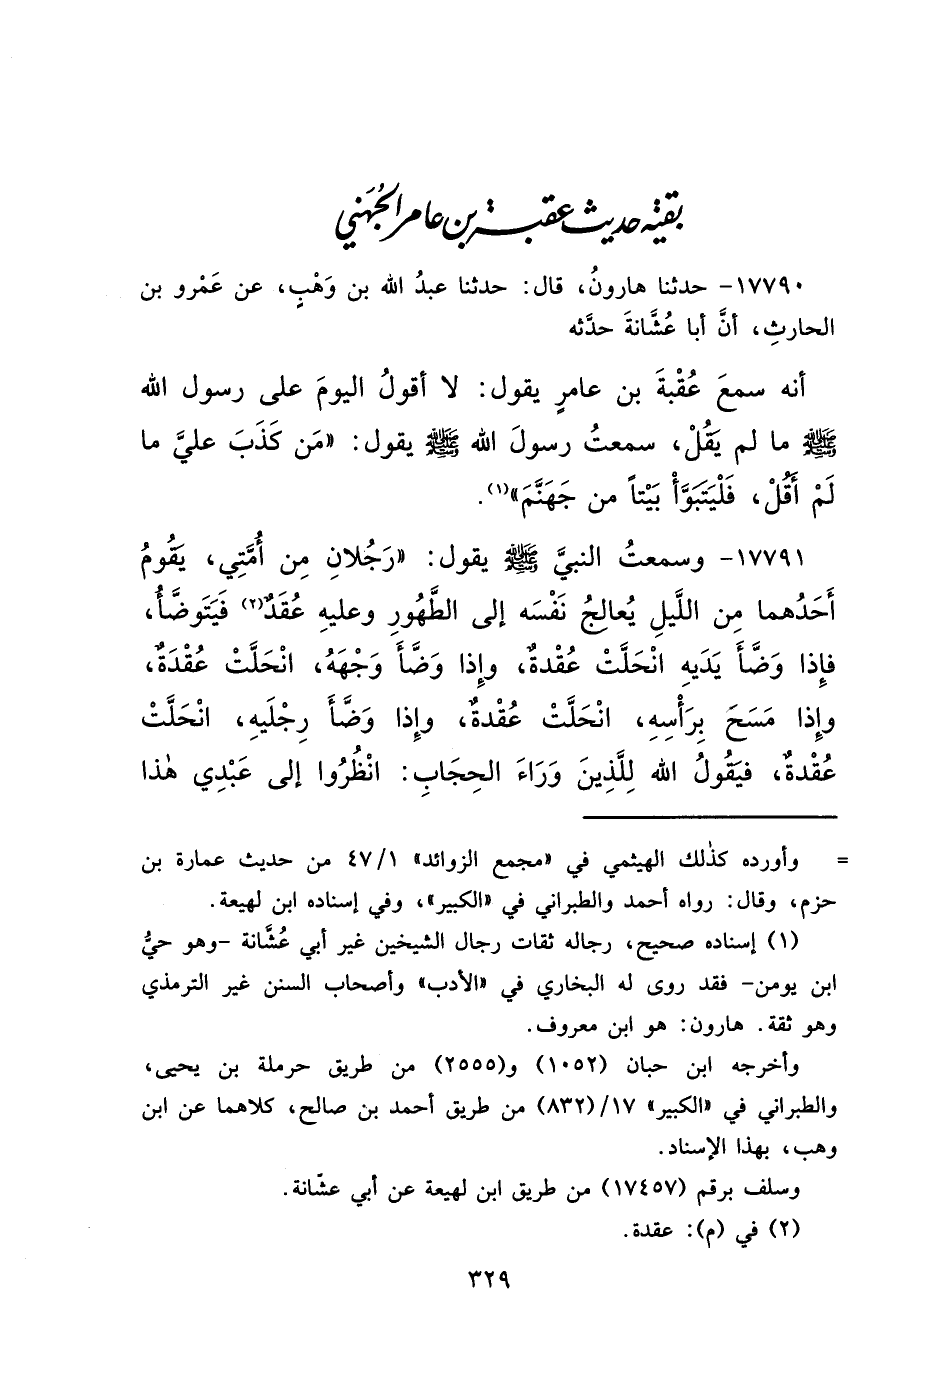 بقية حديث عقبة بن عامر الجُهَني
١٧٧٩٠- حدثنا هارونُ، قال: حدثنا عبدُ الله بن وَهْبٍ، عن عَمْرو بن
الحارثِ، أنَّ أبا عُشَّانةَ حدَّثه
أنه سمعَ عُقْبةَ بن عامرٍ يقول: لا أقولُ اليومَ على رسول الله
ﷺ ما لم يَقُلْ، سمعتُ رسولَ الله ﷺ يقول: «مَن كَذَبَ عليَّ ما
لَمْ أَقُلْ، فَلْيَتَبَوَّأْ بَيْتاً من جَهَنَّمَ»(١).
١٧٧٩١- وسمعتُ النبيَّ ﷺ يقول: «رَجُلانِ مِن أُمَّتِي، يَقُومُ
أَحَدُهما مِن اللَّيلِ يُعالِجُ نَفْسَه إلى الطَّهُورِ وعليهِ عُقَدٌ(٢) فَيَتَوضَّأُ،
فإذا وَضَّأَ يَدَيهِ انْحَلَّتْ عُقْدةٌ، وإذا وَضَّأَ وَجْهَهُ، انْحَلَّتْ عُقْدَةٌ،
وإذا مَسَحَ بِرَأْسِهِ، انْحَلَّتْ عُقْدةٌ، وإذا وَضَّأَ رِجْلَيهِ، انْحَلَّتْ
عُقْدةٌ، فيَقُولُ الله لِلَّذِينَ وَرَاءَ الحِجَابِ: انْظُرُوا إلى عَبْدِي هٰذا
= وأورده كذٰلك الهيثمي في «مجمع الزوائد» ٤٧/١ من حديث عمارة بن
حزم، وقال: رواه أحمد والطبراني في «الكبير»، وفي إسناده ابن لهيعة.
(١) إسناده صحيح، رجاله ثقات رجال الشيخين غير أبي عُشَّانة -وهو حيُّ
ابن يومن- فقد روى له البخاري في «الأدب» وأصحاب السنن غير الترمذي
وهو ثقة. هارون: هو ابن معروف.
وأخرجه ابن حبان (١٠٥٢) و(٢٥٥٥) من طريق حرملة بن يحيى،
والطبراني في «الكبير» ١٧/(٨٣٢) من طريق أحمد بن صالح، كلاهما عن ابن
وهب، بهذا الإسناد.
وسلف برقم (١٧٤٥٧) من طريق ابن لهيعة عن أبي عشّانة.
(٢) في (م): عقدة.
٣٢٩